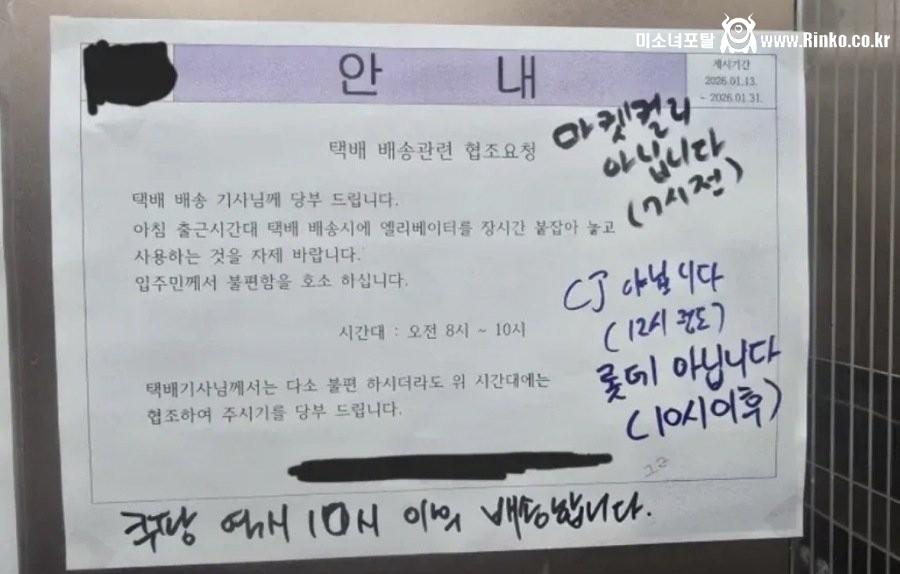 미소녀포탈 www.Rinko.co.kr
안 내
게시기간
2026.01.13.
~ 2026.01.31.
택배 배송관련 협조요청
택배 배송 기사님께 당부 드립니다.
아침 출근시간대 택배 배송시에 엘리베이터를 장시간 붙잡아 놓고
사용하는 것을 자제 바랍니다.
입주민께서 불편함을 호소 하십니다.
시간대 : 오전 8시 ~ 10시
택배기사님께서는 다소 불편 하시더라도 위 시간대에는
협조하여 주시기를 당부 드립니다.
마켓컬리
아닙니다
(7시전)
CJ 아닙니다
(12시 정도)
롯데 아닙니다
(10시이후)
쿠팡 역시 10시 이후 배송합니다.